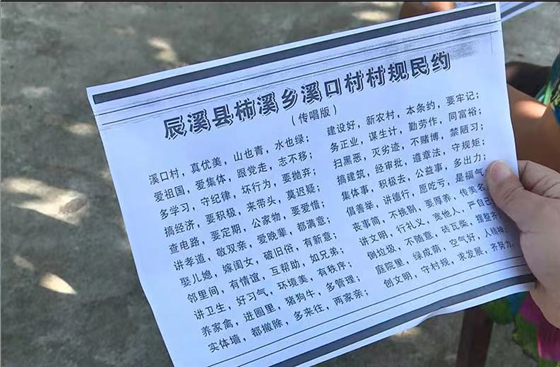 辰溪县柿溪乡溪口村村规民约
（传唱版）
溪口村，真优美，山也青，水也绿；
爱祖国，爱集体，跟党走，志不移；
多学习，守纪律，坏行为，要抛弃；
搞经济，要积极，来带头，莫迟疑；
查电路，要定期，公家物，要爱惜；
讲孝道，敬双亲，爱晚辈，都满意；
娶儿媳，嫁闺女，破旧俗，有新意；
邻里间，有情谊，互帮助，如兄弟；
讲卫生，好习气，环境美，有秩序；
养家禽，进圈里，猪狗牛，多管理；
实体墙，都撤除，多来往，两家亲；
建设好，新农村，本条约，要牢记；
务正业，谋生计，勤劳作，同富裕；
扫黑恶，灭劣迹，不赌博，禁陋习；
搞建筑，经审批，遵章法，守规矩；
集体事，积极去，公益事，多出力；
倡善举，讲德行，愿吃亏，是福气
丧事简，不挑剔，要厚养，传美名
讲文明，行礼义，宽他人，严自己
倒垃圾，不随意，砖瓦柴，摆整齐
庭院里，绿成荫，空气好，人精神
创文明，守村规，求发展，齐努力